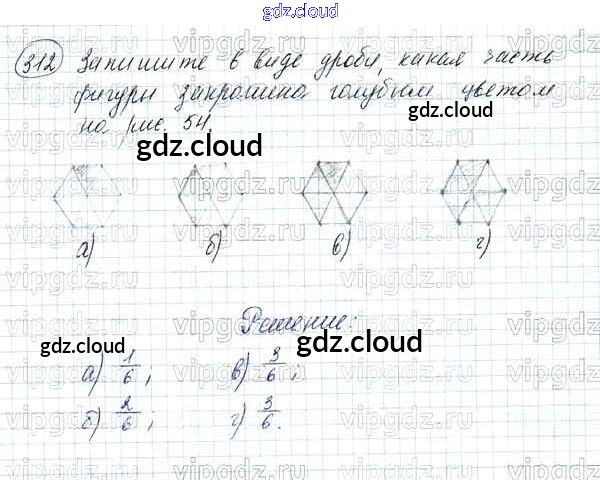 gdz.cloud
312 Запишите в виде дроби, какая часть
фигуры закрашена голубым цветом
на рис. 54.
gdz.cloud
gdz.cloud
gdz.cloud
а) б) в) г)
Решение:
gdz.cloud
gdz.cloud
gdz.cloud
а) 1/6; в) 3/6;
б) 2/6; г) 3/6.